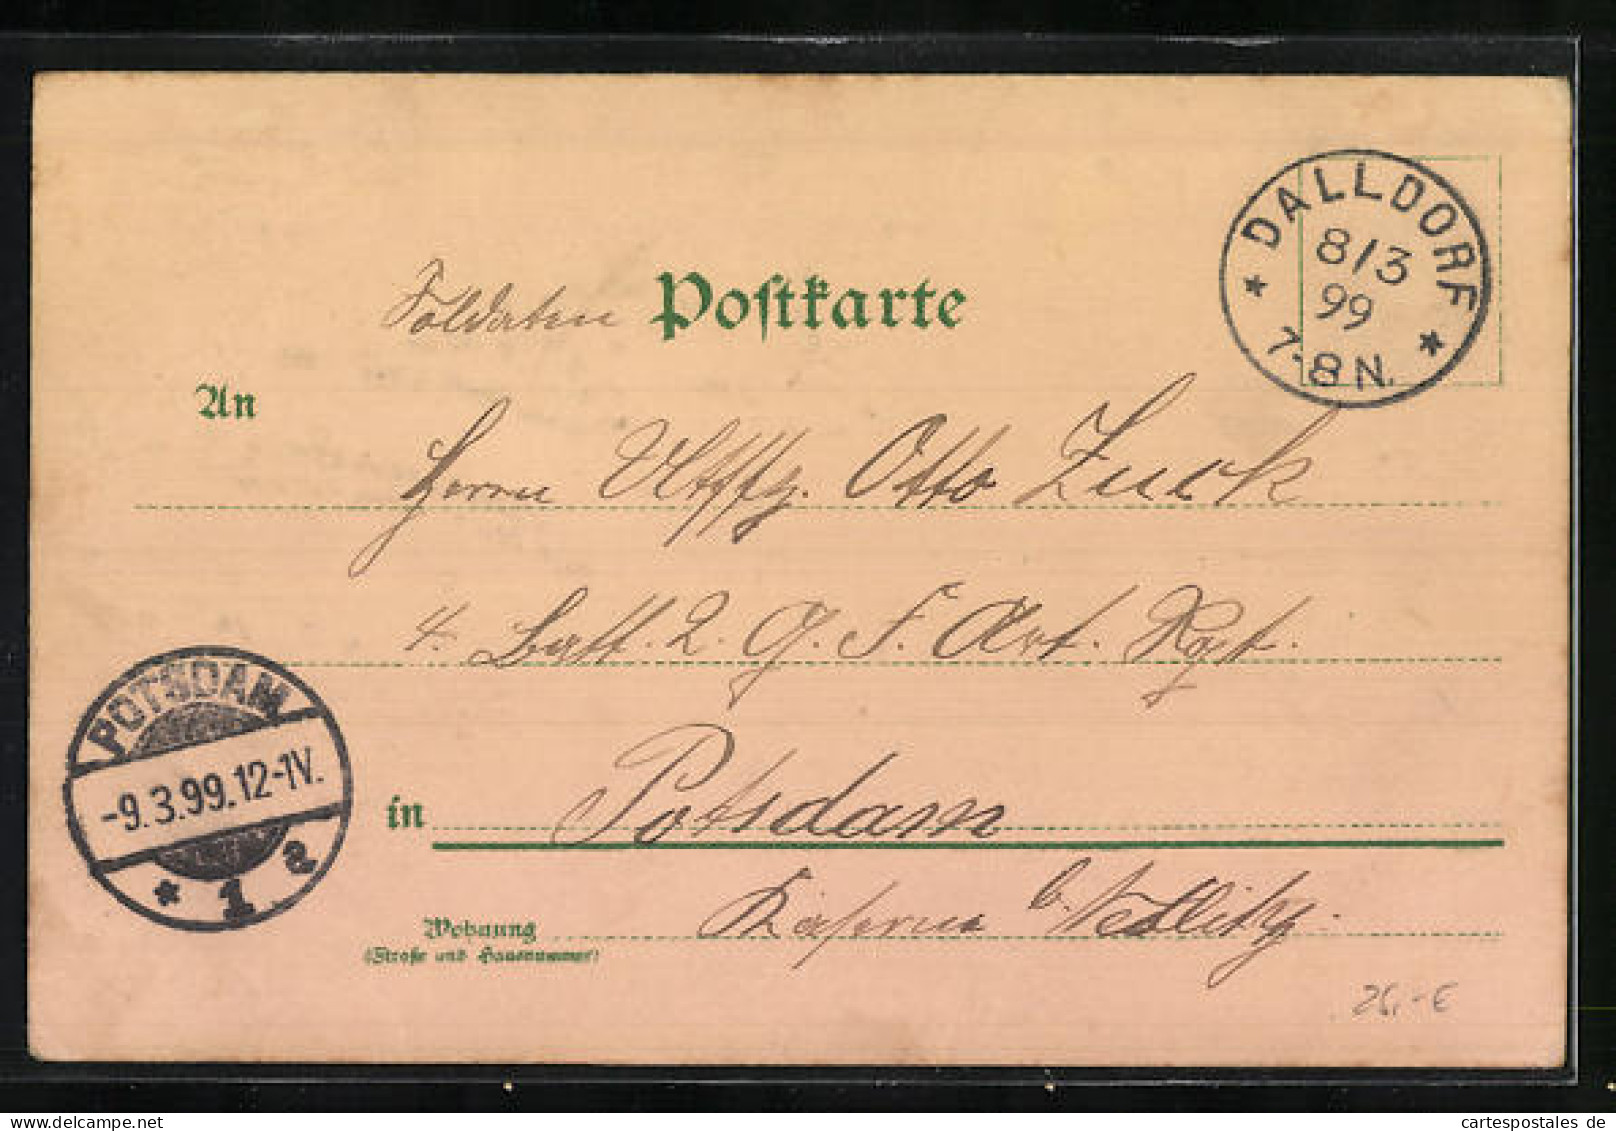 DALLDORF
8/3
99
7-8 N.
Soldaten Postkarte
An
Herrn Otto Zuck
4. Batt. 2. G. F. Art. Rgt.
POTSDAM
-9.3.99.12-1V.
* 1 a
in Potsdam
Kaserne b. Nedlitz.
Wohnung
(Straße und Hausnummer)
25,-€
cartespostales.de